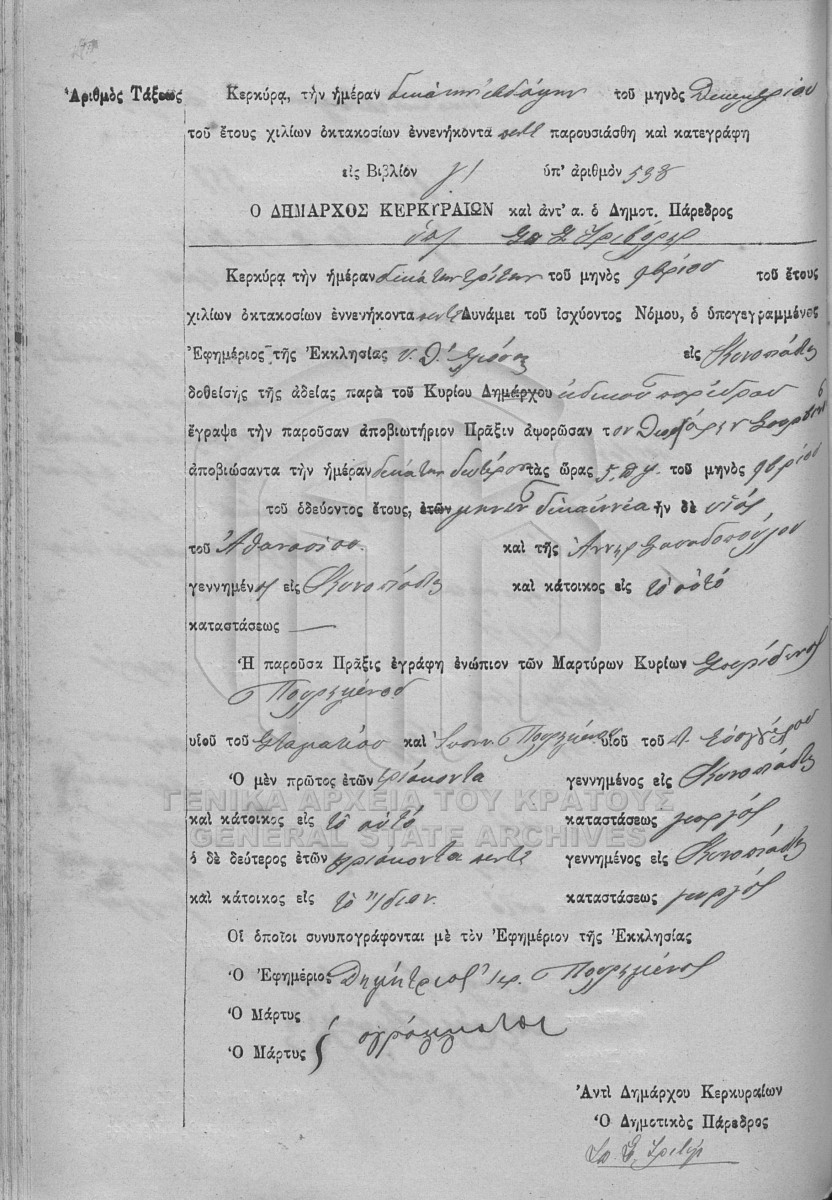 Ἀριθμὸς Τάξεως
Κερκύρα, τὴν ἡμέραν δεκάτην ἑβδόμην τοῦ μηνὸς Δεκεμβρίου
τοῦ ἔτους χιλίων ὀκτακοσίων ἐννενήκοντα πέντε παρουσιάσθη καὶ κατεγράφη
εἰς Βιβλίον γ/ ὑπ' ἀριθμὸν 538
Ο ΔΗΜΑΡΧΟΣ ΚΕΡΚΥΡΑΙΩΝ καὶ ἀντ' α. ὁ Δημοτ. Πάρεδρος
Κερκύρα τὴν ἡμέραν δεκάτην τρίτην τοῦ μηνὸς 9βρίου τοῦ ἔτους
χιλίων ὀκτακοσίων ἐννενήκοντα πέντε Δυνάμει τοῦ ἰσχύοντος Νόμου, ὁ ὑπογεγραμμένος
Ἐφημέριος τῆς Ἐκκλησίας εἰς Κυνοπιάστε
δοθείσης τῆς ἀδείας παρὰ τοῦ Κυρίου Δημάρχου εἰδικοῦ παρέδρου
ἔγραψε τὴν παροῦσαν ἀποβιωτήριον Πρᾶξιν ἀφορῶσαν τον
ἀποβιώσαντα τὴν ἡμέραν δεκάτην δευτέραν τὰς ὥρας 5. π.μ. τοῦ μηνὸς 9βρίου
τοῦ ὁδεύοντος ἔτους, ἐτῶν μηνῶν δεκαεννέα ἦν δὲ υἱὸς
τοῦ Ἀθανασίου καὶ τῆς Ἄννης Παπαδοπούλου
γεννημένος εἰς Κυνοπιάστε καὶ κάτοικος εἰς τὸ αὐτό
καταστάσεως —
Ἡ παροῦσα Πρᾶξις ἐγράφη ἐνώπιον τῶν Μαρτύρων Κυρίων Σπυρίδωνος
Πουλημένος
υἱοῦ τοῦ Σταματίου καὶ Ἰωάν. Πουλημένος υἱοῦ τοῦ
Ὁ μὲν πρῶτος ἐτῶν τριάκοντα γεννημένος εἰς Κυνοπιάστε
καὶ κάτοικος εἰς τὸ αὐτό καταστάσεως γεωργός
ὁ δὲ δεύτερος ἐτῶν τριάκοντα πέντε γεννημένος εἰς Κυνοπιάστε
καὶ κάτοικος εἰς τὸ ἴδιον. καταστάσεως γεωργός
Οἱ ὁποῖοι συνυπογράφονται μὲ τὸν Ἐφημέριον τῆς Ἐκκλησίας
Ὁ Ἐφημέριος Δημήτριος ἱερ. Πουλημένος
Ὁ Μάρτυς
Ὁ Μάρτυς } ἀγράμματοι
Ἀντὶ Δημάρχου Κερκυραίων
Ὁ Δημοτικὸς Πάρεδρος
ΓΕΝΙΚΑ ΑΡΧΕΙΑ ΤΟΥ ΚΡΑΤΟΥΣ
GENERAL STATE ARCHIVES